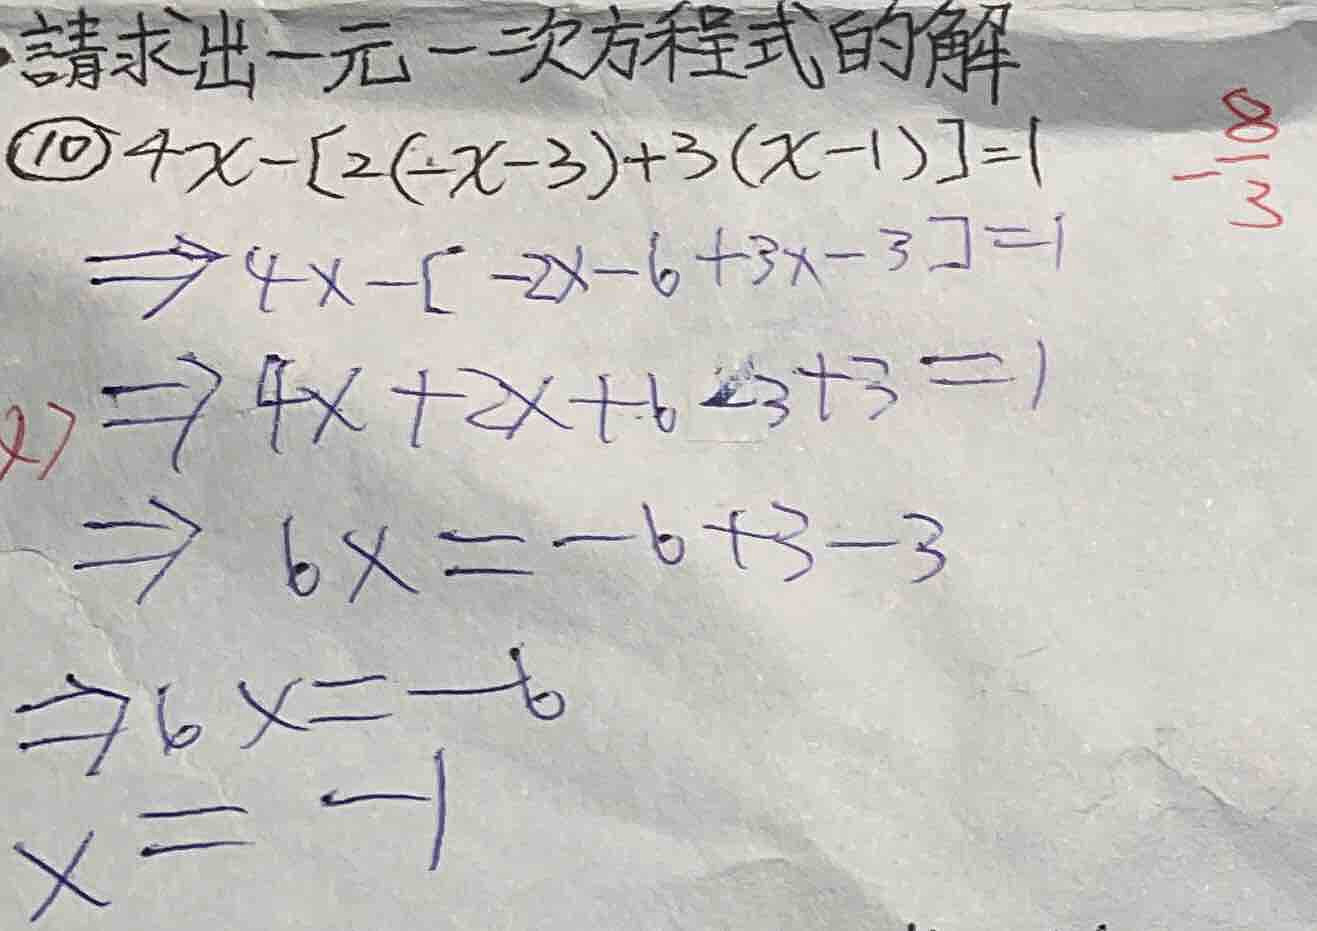 請求出一元一次方程式的解
⑩ 4x-[2(-x-3)+3(x-1)]=1
-8/3
⇒ 4x-[-2x-6+3x-3]=1
⇒ 4x+2x+6-3+3=1
⇒ 6x=-6+3-3
⇒ 6x=-6
x=-1